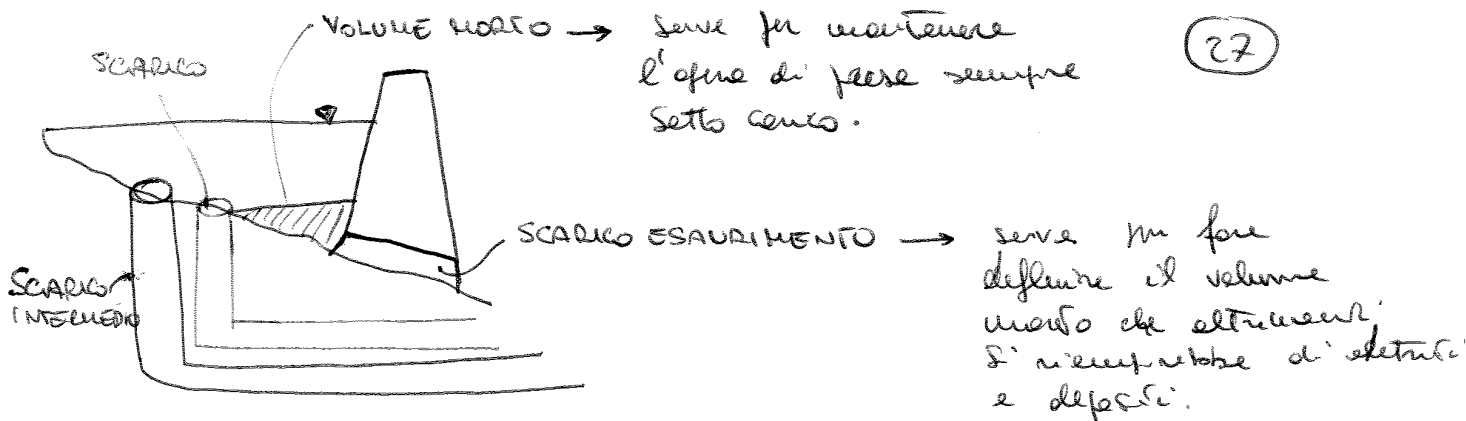 VOLUME MORTO → serve per mantenere
l'opera di presa sempre
sotto carico.
27
SCARICO
SCARICO ESAURIMENTO → serve per fare
defluire il volume
morto che altrimenti
si riempirebbe di detriti
e depositi.
SCARICO
INTERMEDIO